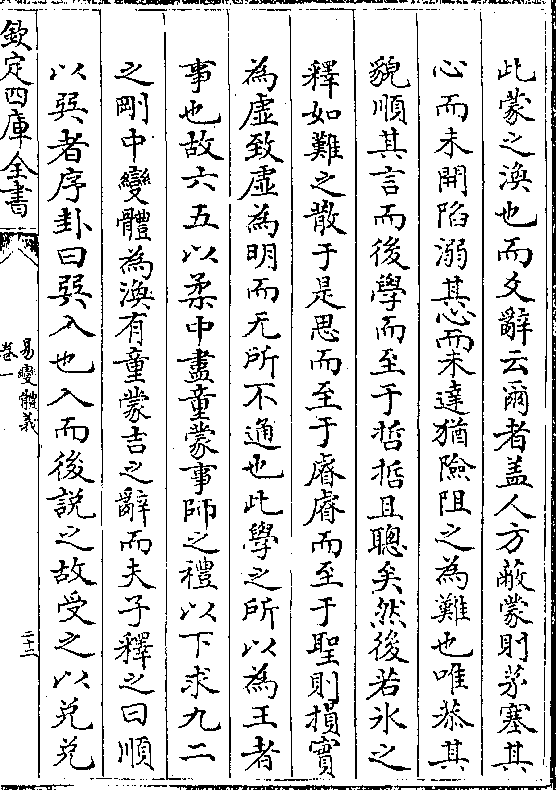 此蒙之渙也而爻辭云爾者盖人方蔽蒙則茅塞其
心而未開陷溺其心而未達猶險阻之為難也唯恭其
貌順其言而後學而至于哲哲且聰矣然後若氷之
釋如難之散于是思而至于睿睿而至于聖則損實
為虚致虚為明而无所不通也此學之所以為王者
事也故六五以柔中盡童蒙事師之禮以下求九二
之剛中變體為渙有童蒙吉之辭而夫子釋之曰順
以巽者序卦曰巽入也入而後説之故受之以兑兑
欽定四庫全書
易變體義
卷一
二十二